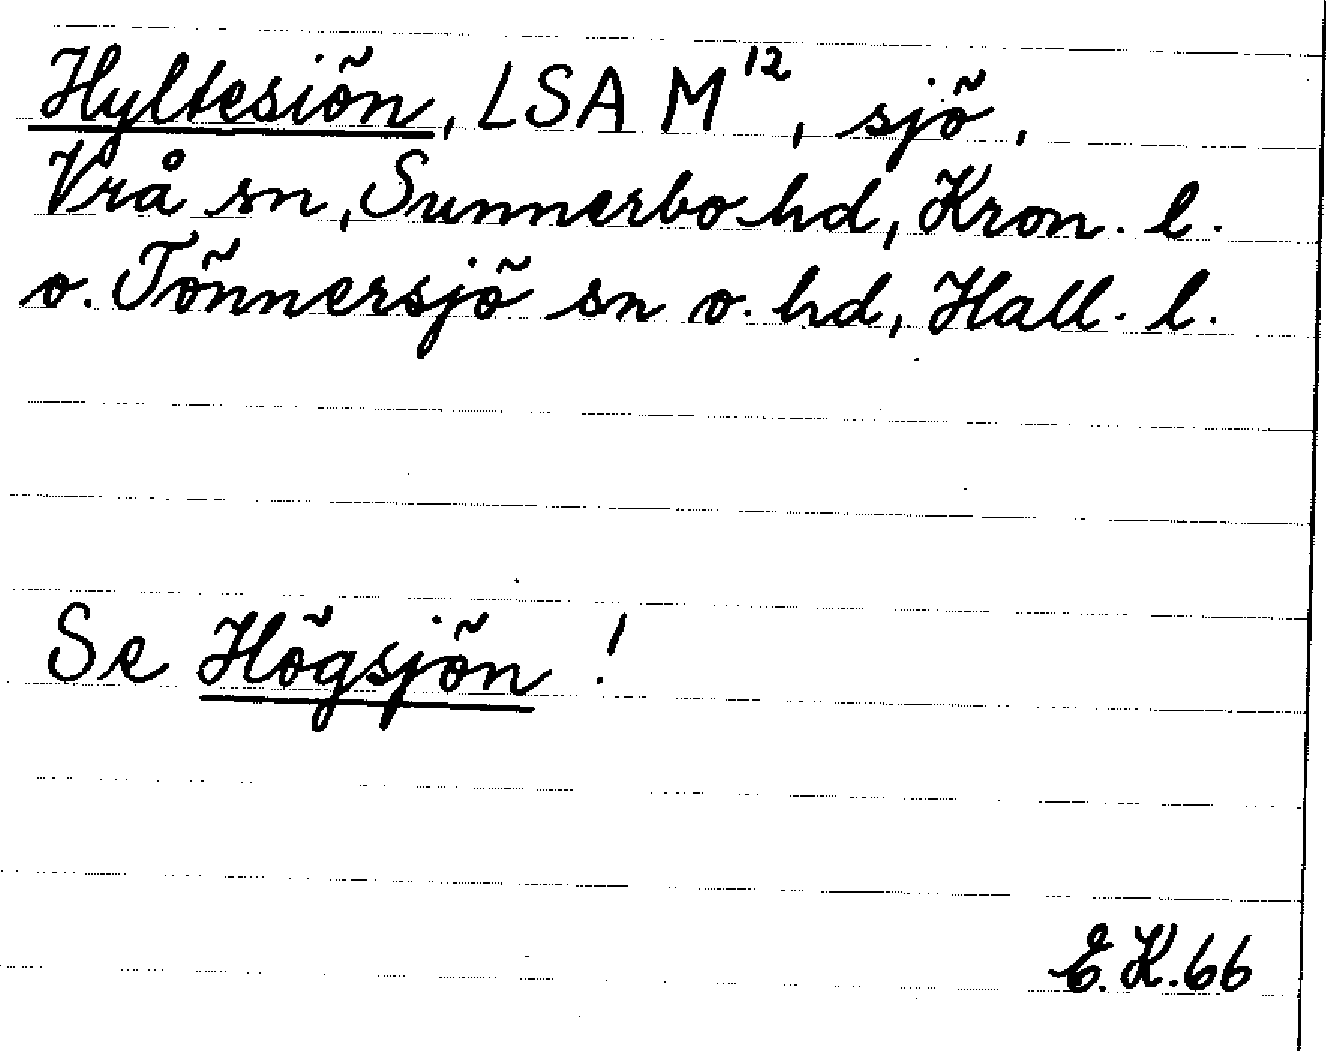 Hyltesiön, LSA M¹², sjö,
Vrå sn, Sunnerbo hd, Kron. l.
o. Tönnersjö sn o. hd, Hall. l.
Se Högsjön !
E.K.66